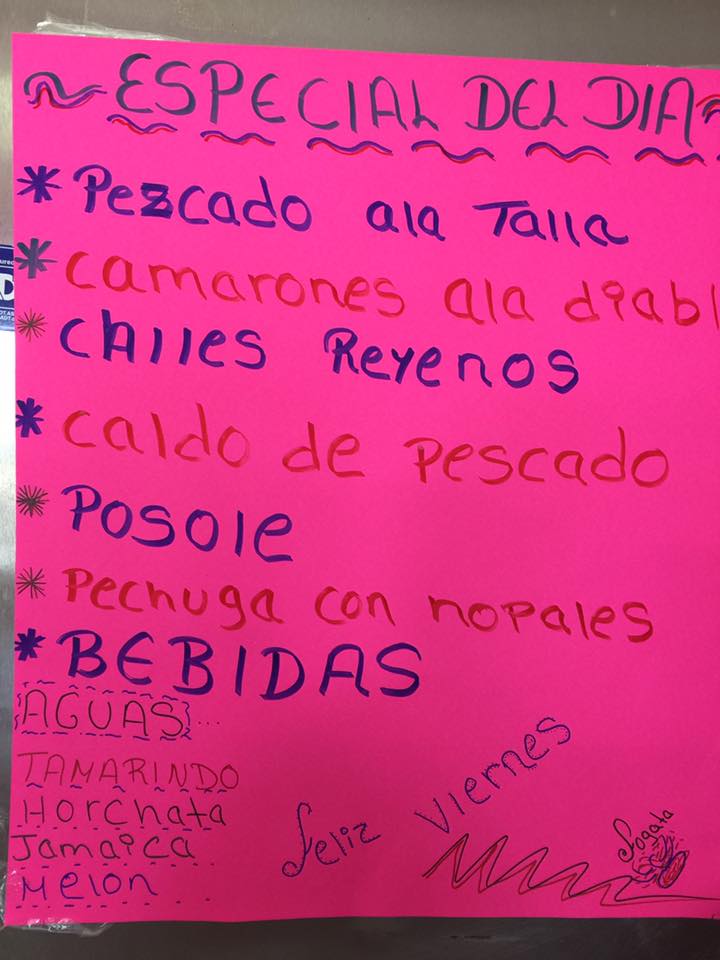 ESPECIAL DEL DIA
* Pezcado ala Talla
* camarones ala diabl
* chiles Reyenos
* caldo de pescado
* Posole
* Pechuga con nopales
* BEBIDAS
AGUAS...
TAMARINDO
Horchata
Jamaica
Melon
feliz Viernes
fogata